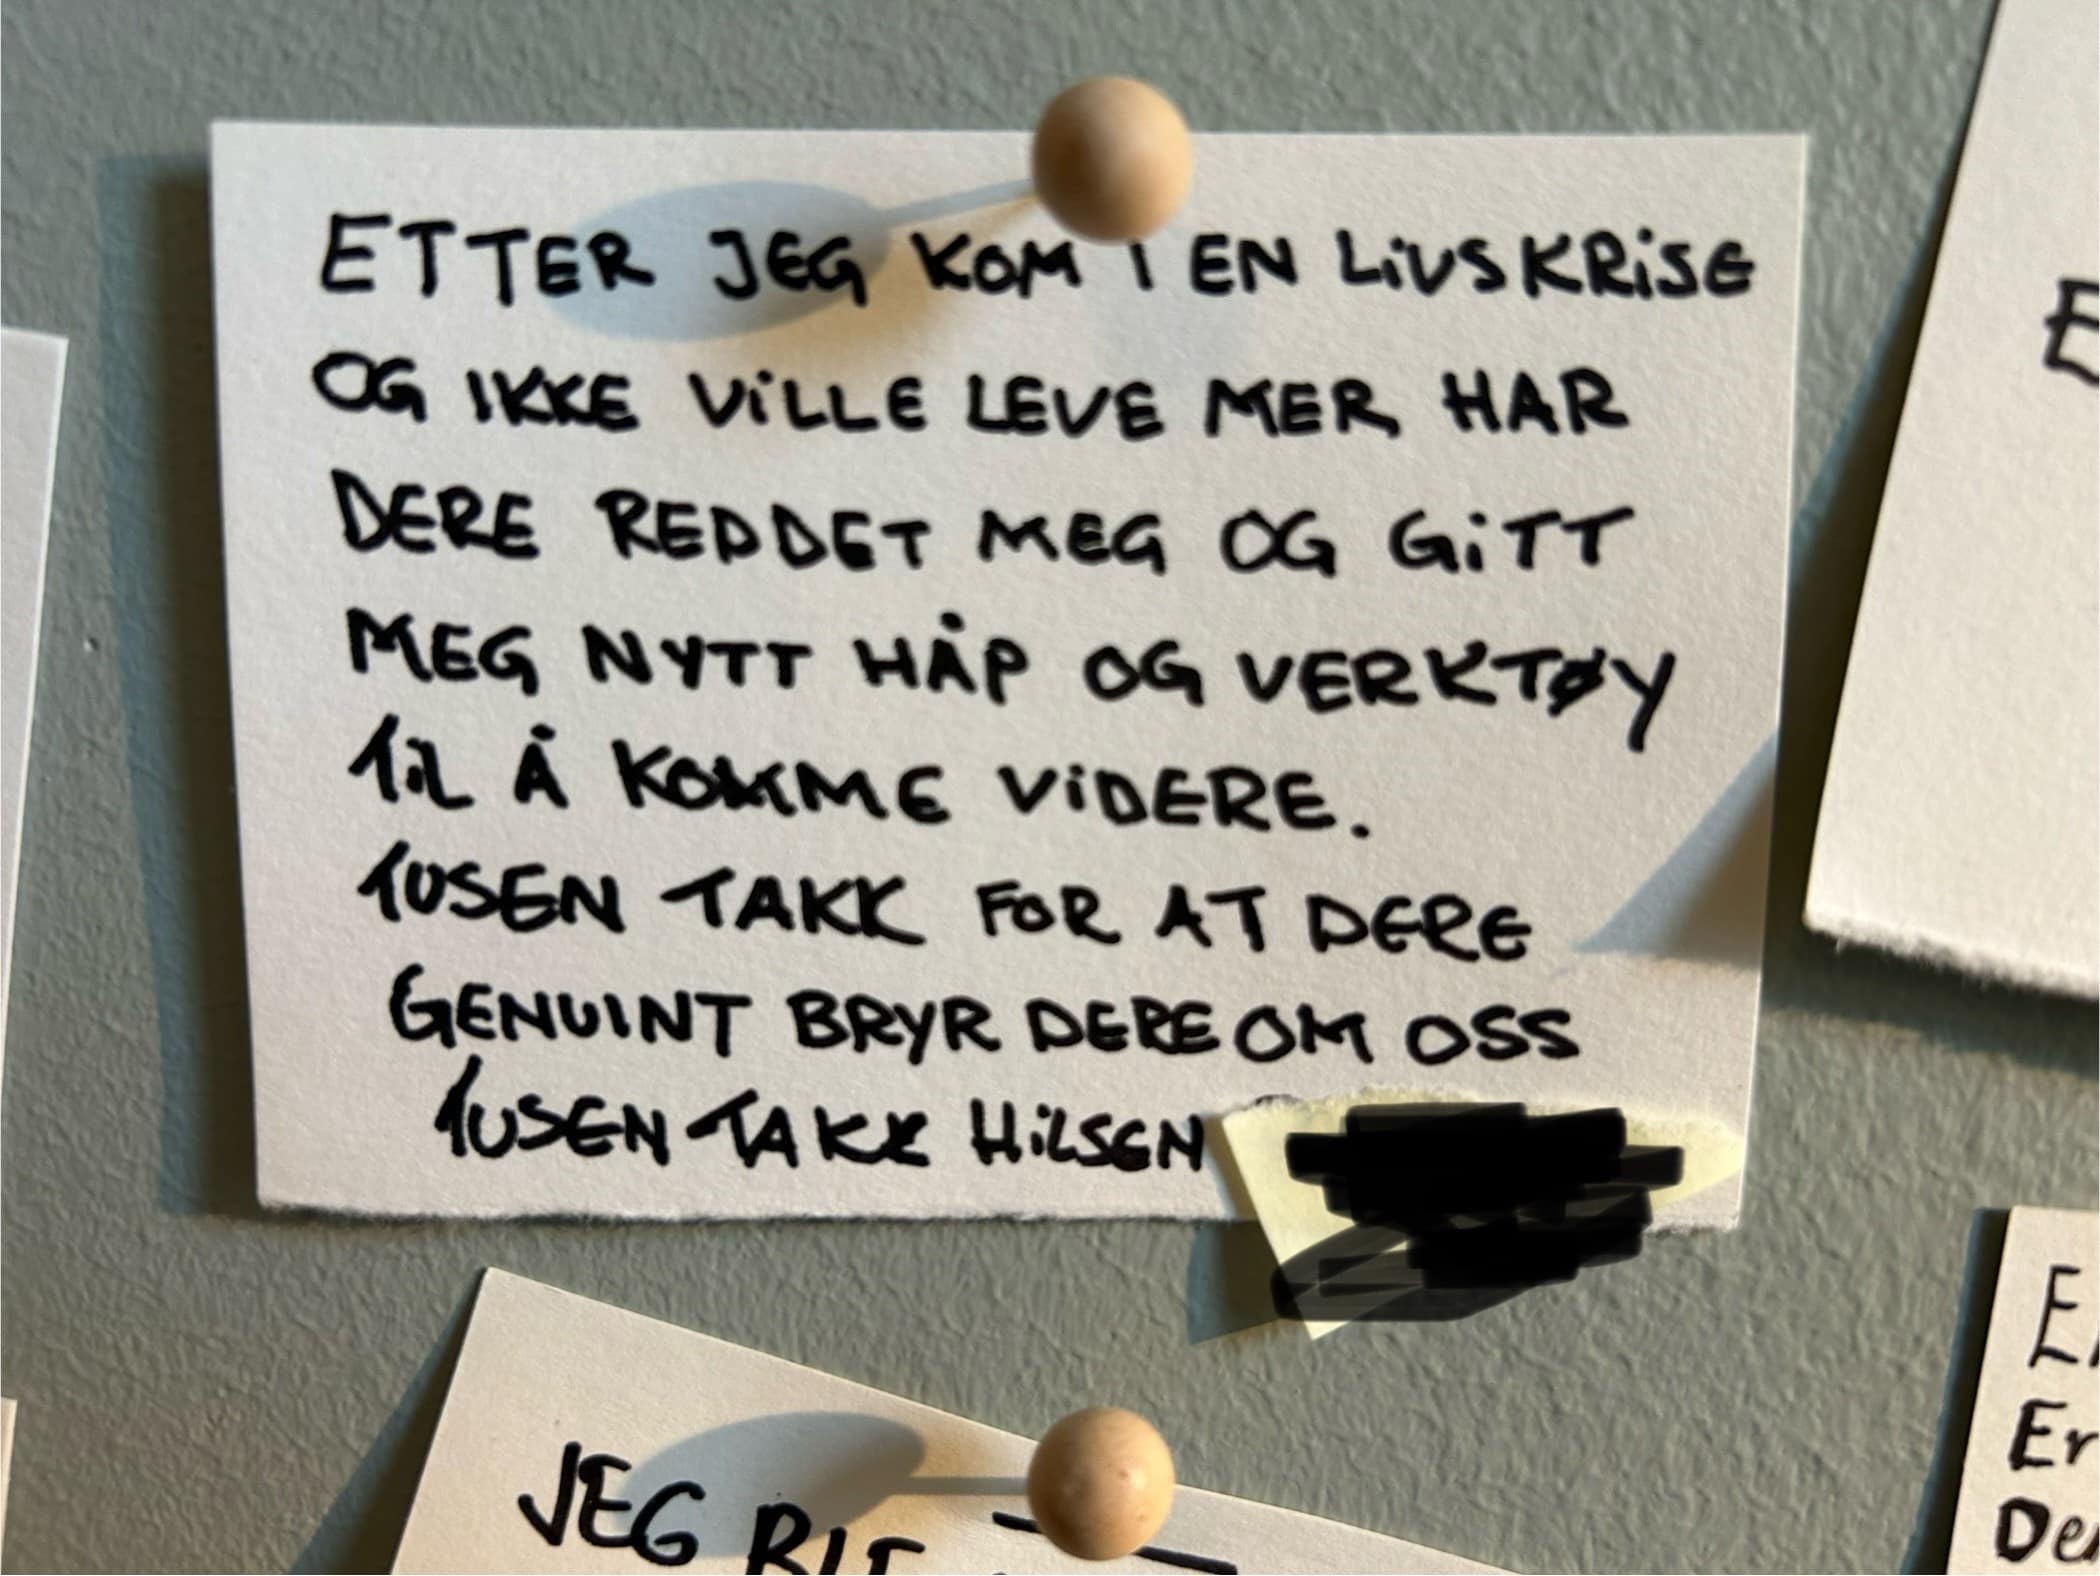 ETTER JEG KOM I EN LIVSKRISE
OG IKKE VILLE LEVE MER HAR
DERE REDDET MEG OG GITT
MEG NYTT HÅP OG VERKTØY
TIL Å KOMME VIDERE.
TUSEN TAKK FOR AT DERE
GENUINT BRYR DERE OM OSS
TUSEN TAKK HILSEN
JEG
Er